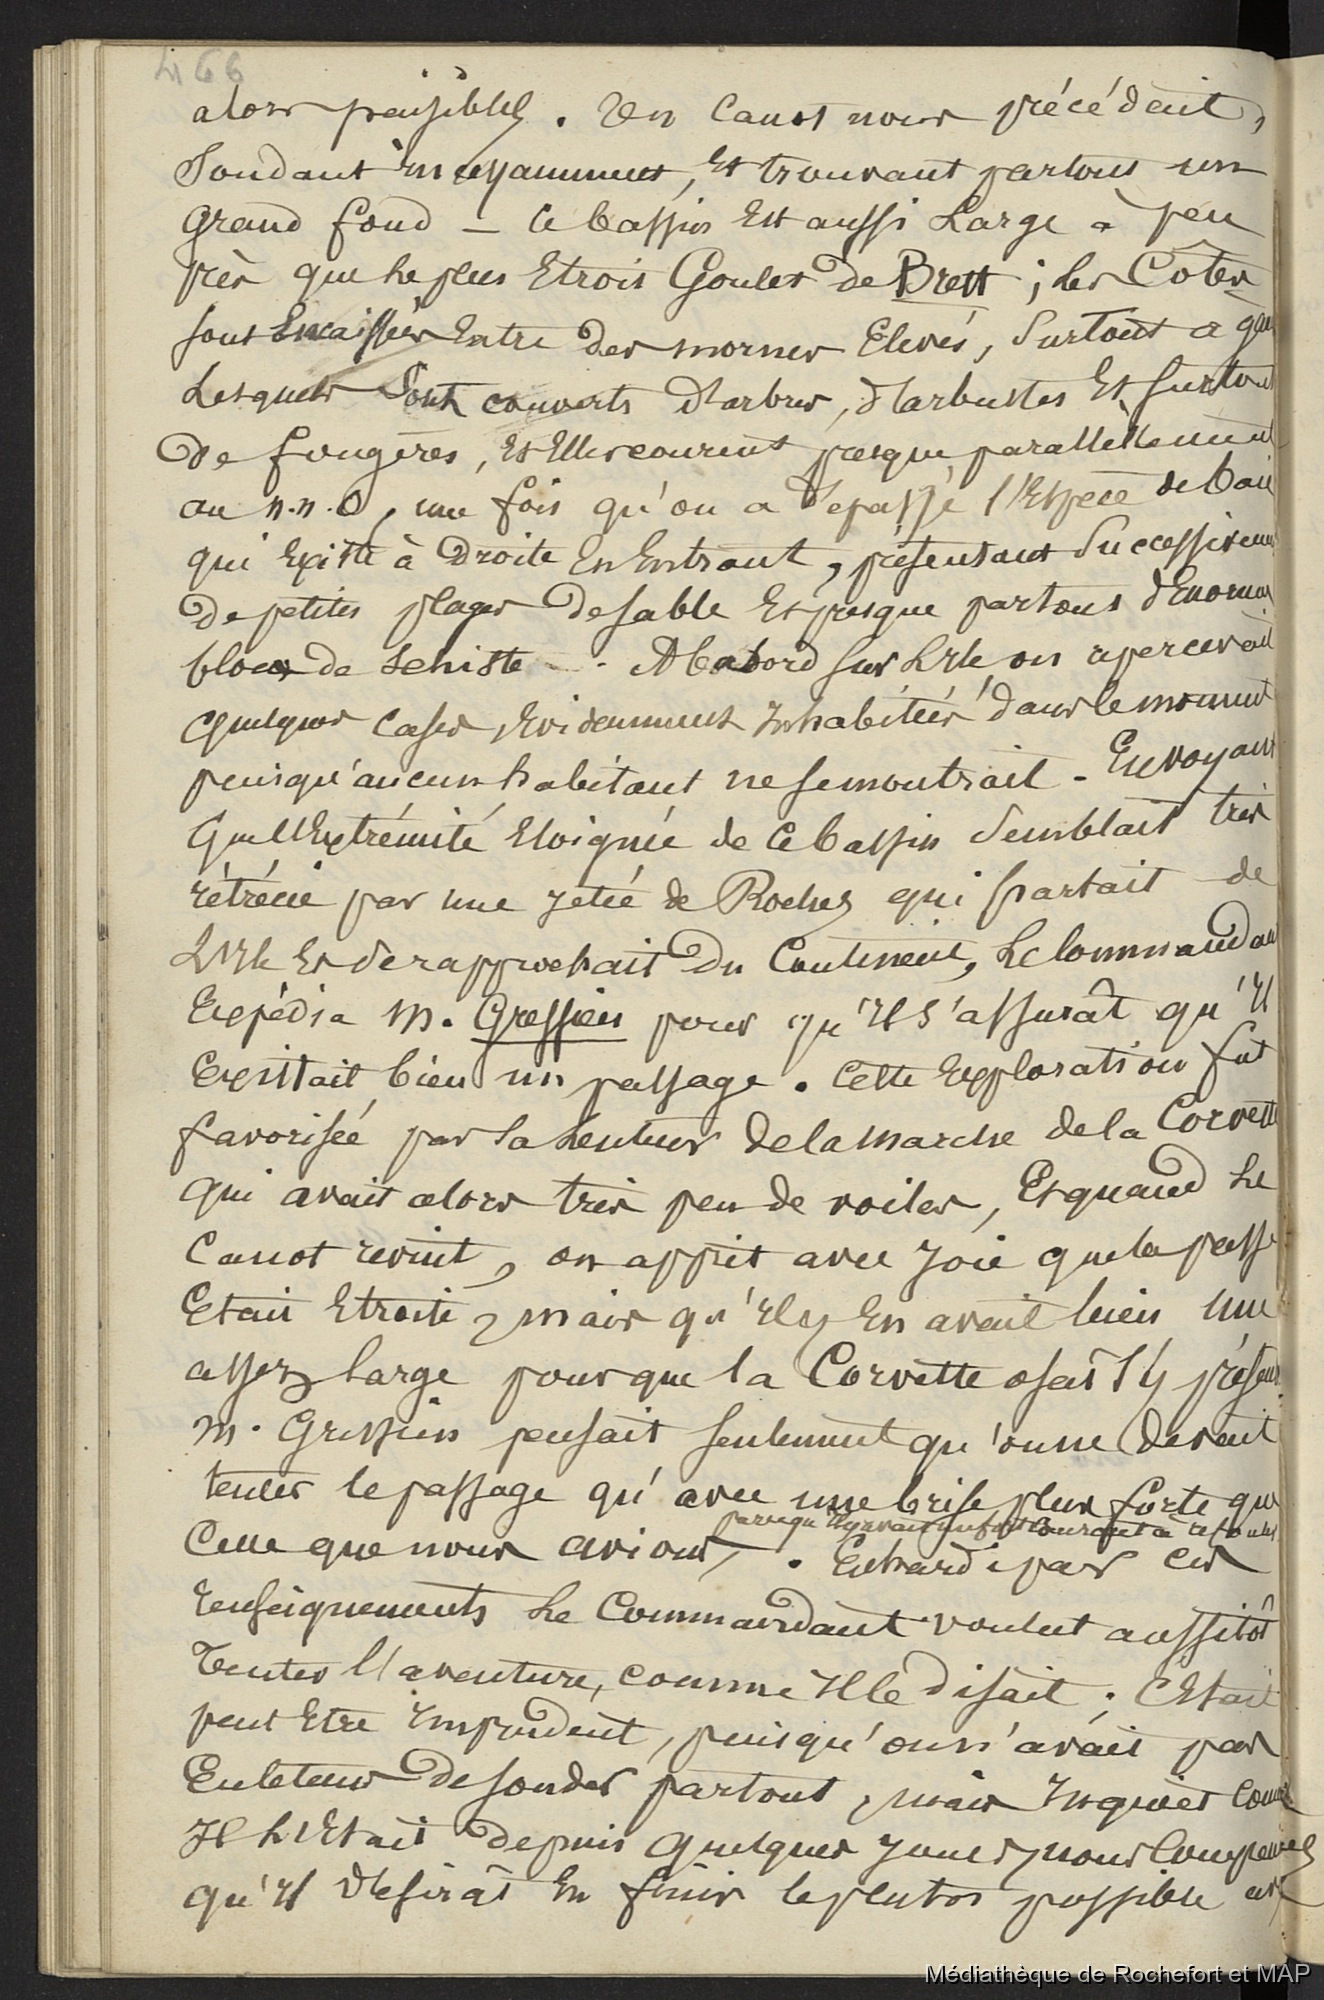 466
alors paisibles. Un Canot nous précédait,
Sondant incessamment, Et trouvant partout un
grand fond — Ce bassin Est aussi Large à peu
près que Le plus Etroit Goulet de Brest ; Les Côtes
sont Encaissées Entre des mornes Elevés, Surtout a gau
Lesquels Sont couverts d'arbres, d'arbustes Et surtout
De fougères, Et Elles courent presque parallèlement
au n.n.O, une fois qu'on a dépassé l'Espèce de baie
qui Existe à Droite En Entrant, présentant Successivem
De petites plages de sable Et presque partout d'Enormes
blocs de schiste - . A babord sur L'Ile on apercevait
quelques cases, Evidemment Inhabitées dans le moment
puisqu'aucun habitant ne se montrait - En voyant
que l'Extrémité Eloignée de Ce bassin Semblait très
rétrécie par une jetée de Roches qui partait de
L'Ile Et se rapprochait Du Continent, Le Commandant
Expédia M. Gressien pour qu'Il s'assurât qu'Il
Existait bien un passage. Cette Exploration fut
favorisée par la Lenteur de la marche de la Corvette
qui avait alors très peu de voiles, Et quand Le
Canot revint, on apprit avec joie que la passe
Etait Etroite, mais qu'Il y En avait bien une
assez Large pour que la Corvette osât s'y présenter.
M. Gressien pensait seulement qu'on ne devait
tenter le passage qu'avec une brise plus forte que
parcequ'Il y avait un fort Courant à refouler
Celle que nous avions, . Enhardi par ces
renseignements Le Commandant voulut aussitôt
Tenter l'aventure, comme Il le disait ; C'Etait
peut Etre Imprudent, puisqu'on n'avait pas
Eu le temps De sonder partout, mais Inquiet Comme
Il L'Etait depuis quelques jours, nous Comprenez
qu'Il désirât En finir le plutôt possible av
Médiathèque de Rochefort et MAP